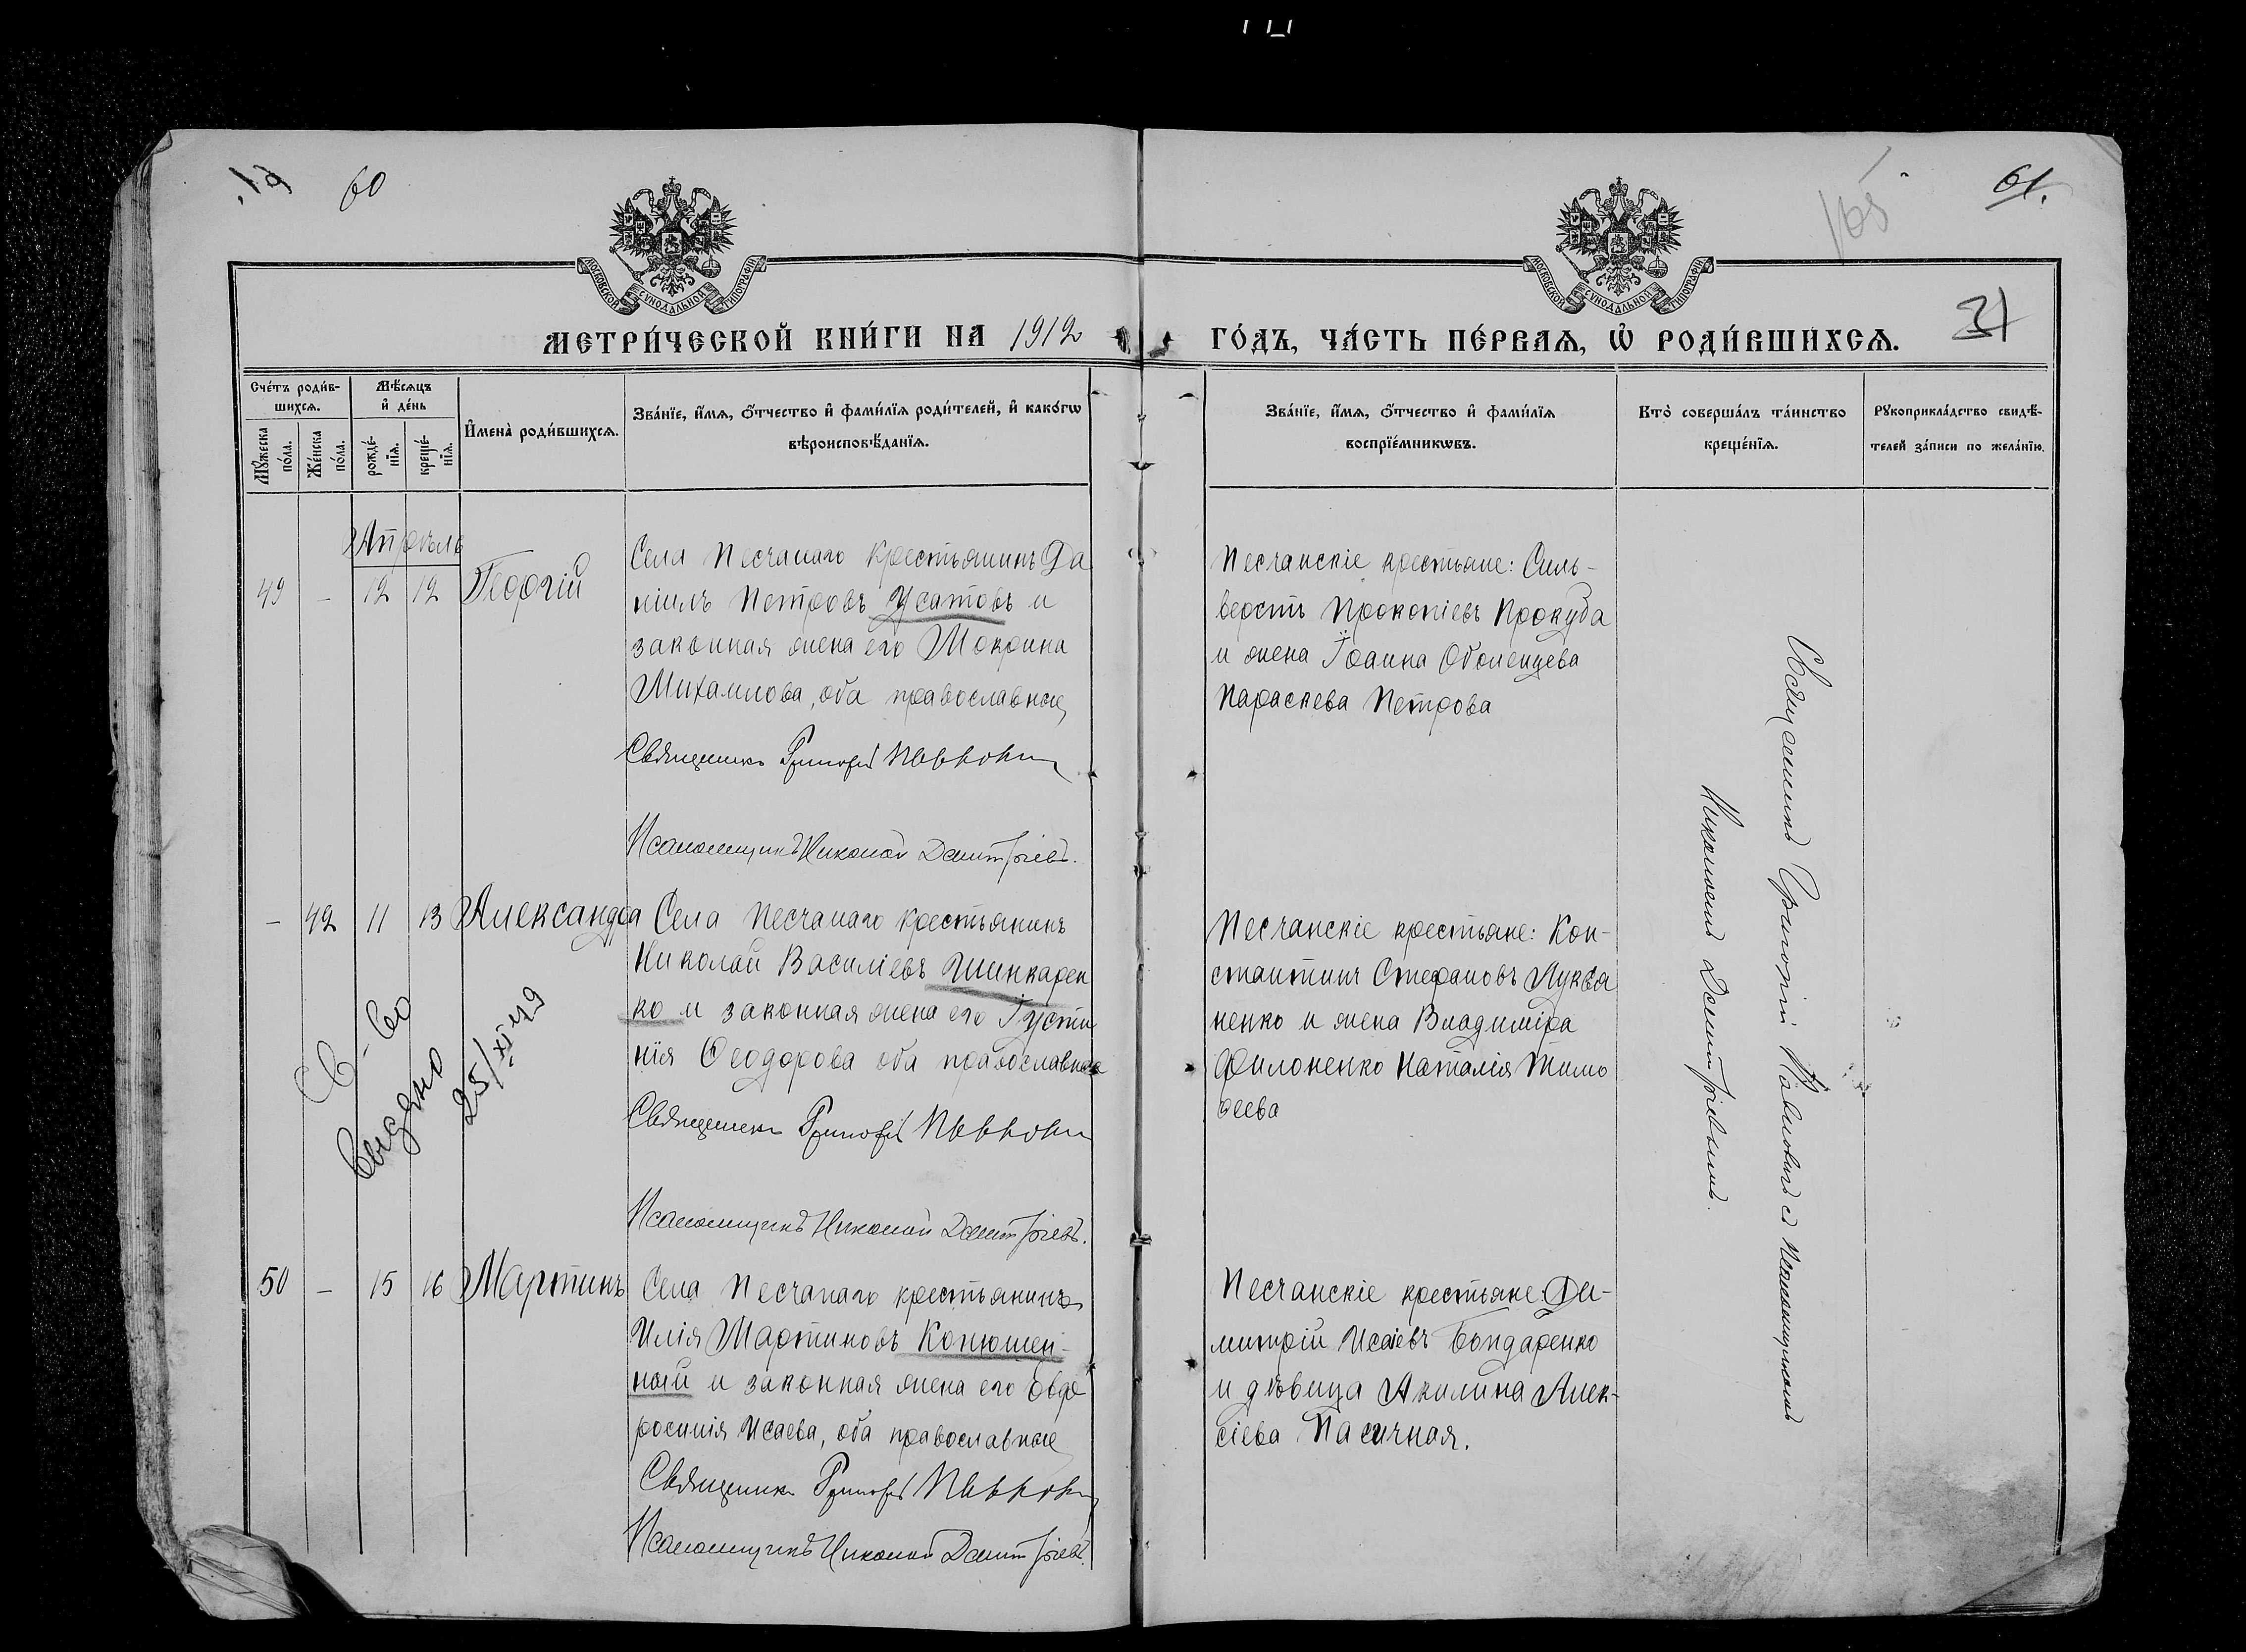 60
61.
165
31
МОСКОВСКОЙ СѴНОДАЛЬНОЙ ТИПОГРАФІИ
МОСКОВСКОЙ СѴНОДАЛЬНОЙ ТИПОГРАФІИ
МЕТРИ́ЧЕСКОЙ КНИ́ГИ НА 1912 ГО́ДЪ, ЧА́СТЬ ПЕ́РВАѦ, Ѡ҆ РОДИ́ВШИХСѦ.
Сче́тъ роди́в-
шихсѧ.
Мѣ́сѧцъ
и҆ де́нь
Мꙋ́жеска
по́ла.
Же́нска
по́ла.
рожде́-
нїѧ.
креще́-
нїѧ.
И҆мена̀ роди́вшихсѧ.
Зва́нїе, и҆́мѧ, ѻ҆́тчество и҆ фами́лїѧ роди́телей, и҆ како́гѡ
вѣроисповѣ́данїѧ.
Зва́нїе, и҆́мѧ, ѻ҆́тчество и҆ фами́лїѧ
воспрїе́мникѡвъ.
Кто̀ соверша́лъ та́инство
креще́нїѧ.
Рꙋкоприкла́дство свидѣ́-
телей за́писи по жела́нїю.
Апрѣль
49 – 12 12 Георгій
Села Песчанаго крестьянинъ Да
ніилъ Петровъ Усатовъ и
законная жена его Мокрина
Михаилова, оба православные
Священникъ Григорій
Псаломщикъ Николай Димитріевъ.
Песчанскіе крестьяне: Силь-
верстъ Прокопіевъ Прокуда
и жена Іоанна Оболенцева
Параскева Петрова
– 42 11 13 Александра
Села Песчанаго крестьянинъ
Николай Василіевъ Шинкарен
ко и законная жена его Іусти
нія Ѳеодорова оба православные
Священникъ Григорій
Псаломщикъ Николай Димитріевъ.
Св-во
выдано
25/XI 49
Песчанскіе крестьяне: Кон-
стантинъ Стефановъ Лукья
ненко и жена Владиміра
Филоненко Наталія Тимо
ѳеева
50 – 15 16 Мартинъ
Села Песчанаго крестьянинъ
Илія Мартиновъ Конюшен-
ный и законная жена его Евф
росинія Исаева, оба православные
Священникъ Григорій
Псаломщикъ Николай Димитріевъ.
Песчанскіе крестьяне: Ди-
митрій Исаіевъ Бондаренко
и дѣвица Акилина Алек-
сіева Пасичная.
Священникъ Григорій съ Псаломщикомъ
Николаемъ Димитріевымъ.